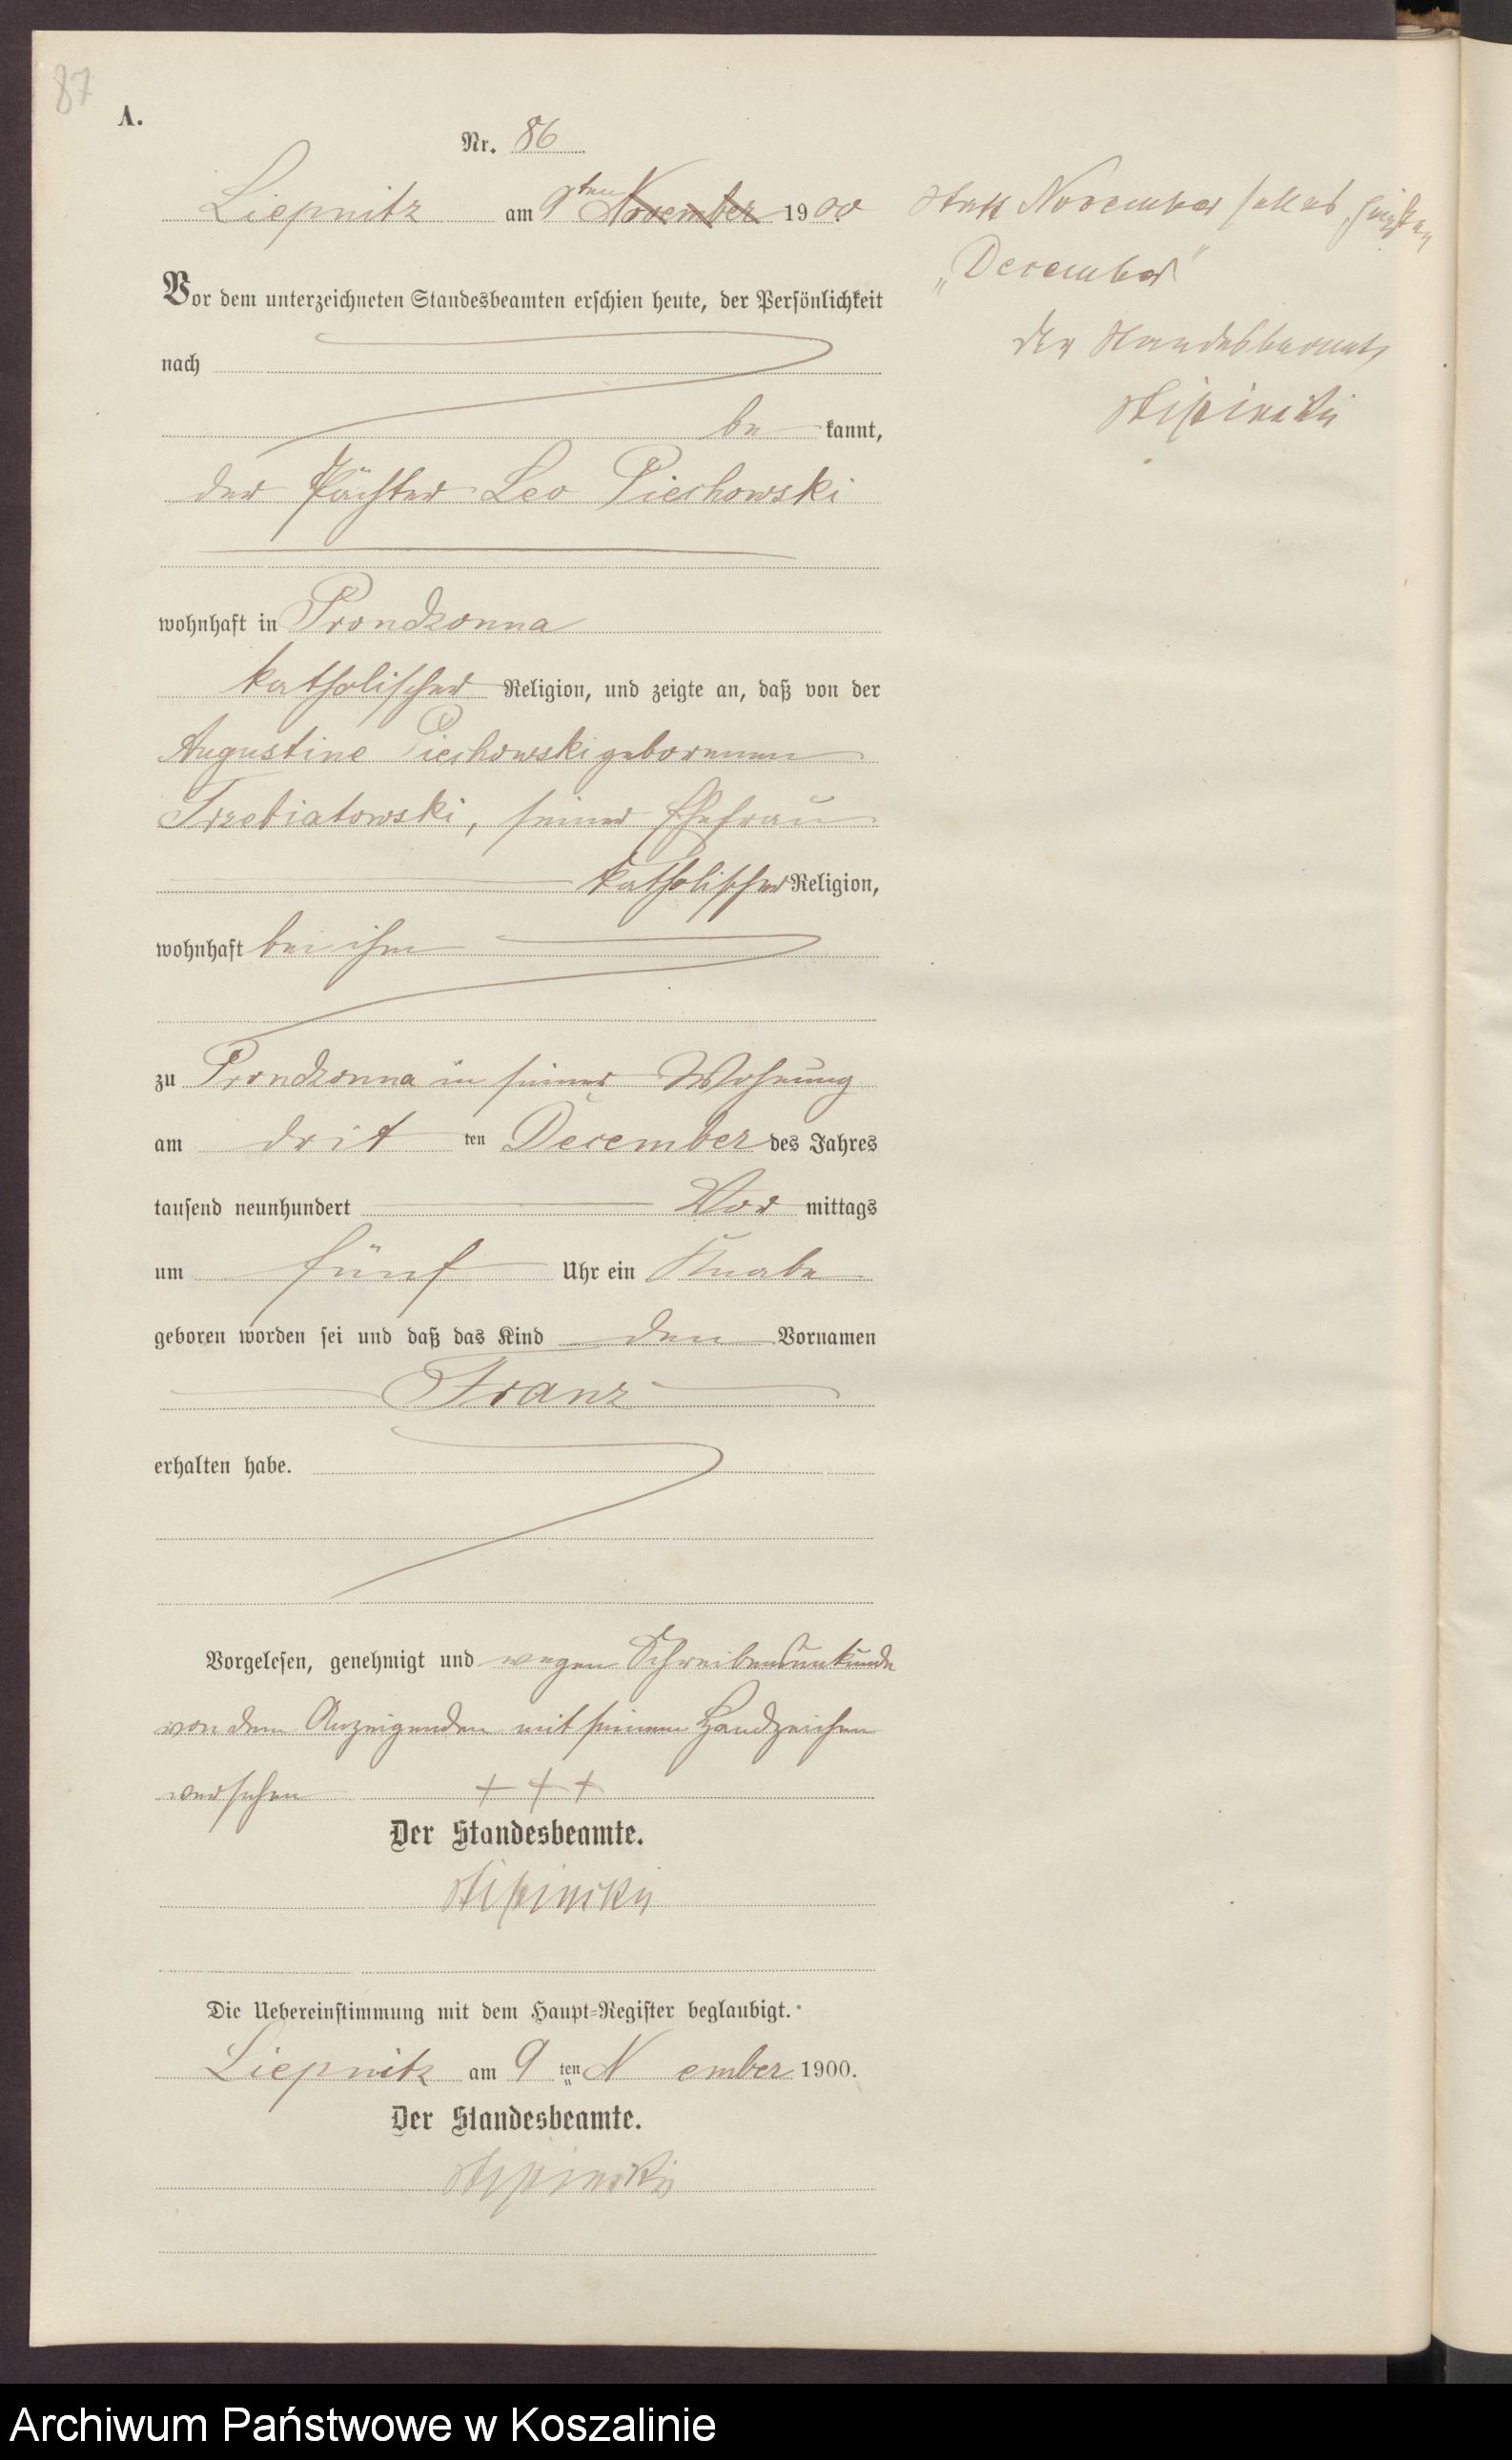 87
A.
Nr. 86
Liepnitz am 9ten November 1900
statt November
„December"
der Standesbeamte
Vor dem unterzeichneten Standesbeamten erschien heute, der Persönlichkeit
nach
be kannt,
der Pächter Leo Piechowski
wohnhaft in Prondzonna
katholischer Religion, und zeigte an, daß von der
Augustine Piechowski geborenen
Trzebiatowski, seiner Ehefrau
katholischer Religion,
wohnhaft bei ihm
zu Prondzonna in seiner Wohnung
am drit ten December des Jahres
tausend neunhundert Vor mittags
um fünf Uhr ein Knabe
geboren worden sei und daß das Kind den Vornamen
Franz
erhalten habe.
Vorgelesen, genehmigt und wegen Schreibensunkunde
von dem Anzeigenden mit seinem Handzeichen
versehen + + +
Der Standesbeamte.
Die Uebereinstimmung mit dem Haupt=Register beglaubigt.
Liepnitz am 9 ten N ember 1900.
Der Standesbeamte.
Archiwum Państwowe w Koszalinie